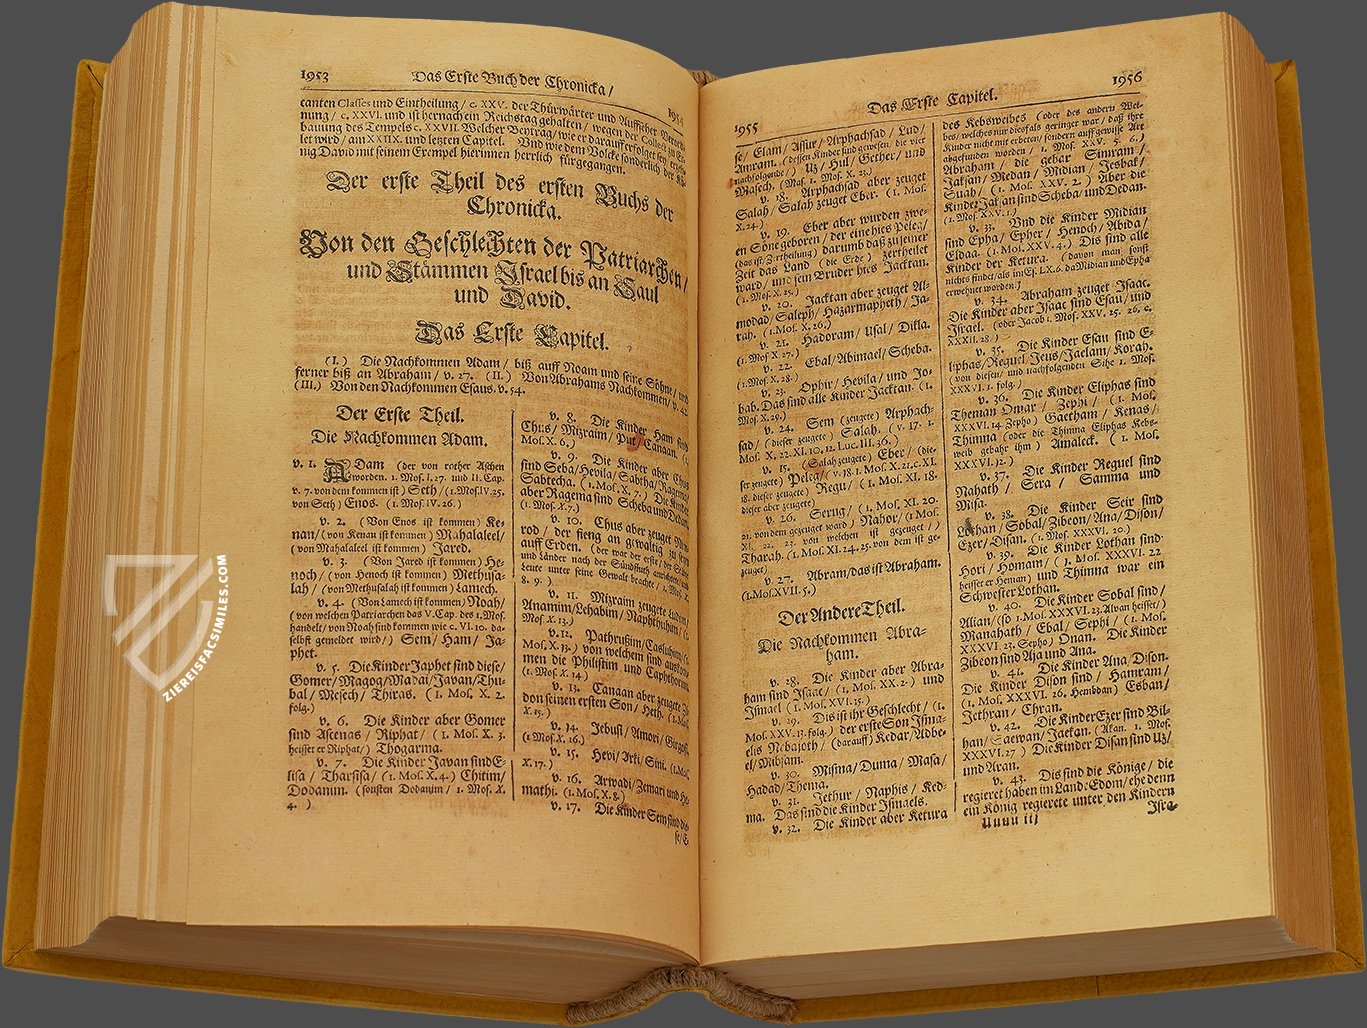 1953
Das Erste Buch der Chronicka /
1954
tanten Classes und Eintheilung / c. XXV. der Thürwärter und Auffseher
nung / c. XXVI. und ist hernach ein Reichstag gehalten / wegen der Collect
bauung des Tempels c. XXVII. Welcher Beytrag / wie er darauff erfolget sey
let wird / am XXIX. und letzten Capitel. Und wie dem Volcke sonderlich der
nig David mit seinem Exempel hierinnen herrlich fürgegangen.
Der erste Theil des ersten Buchs der
Chronicka.
Von den Geschlechten der Patriarchen /
und Stämmen Israel bis an Saul
und David.
Das Erste Capitel.
(I.) Die Nachkommen Adam / biß auff Noam und seine Söhne / und
ferner biß an Abraham / v. 27. (II.) Von Abrahams Nachkommen / v. 42.
(III.) Von den Nachkommen Esaus. v. 54.
Der Erste Theil.
Die Nachkommen Adam.
v. 1. ADam (der von rother Aschen
worden. 1. Mos. I. 27. und II. Cap.
v. 7. von dem kommen ist) Seth / (1. Mos. IV. 25.
von Seth) Enos. (1. Mos. IV. 26.)
v. 2. (Von Enos ist kommen) Ke-
nan / (von Kenan ist kommen) Mahalaleel /
(von Mahalaleel ist kommen) Jared.
v. 3. (Von Jared ist kommen) He-
noch / (von Henoch ist kommen) Methusa-
lah / (von Methusalah ist kommen) Lamech.
v. 4. (Von Lamech ist kommen) Noah /
(von welchen Patriarchen das V. Cap. des 1. Mos.
handelt / von Noah sind kommen wie c. VI. 10. da-
selbst gemeldet wird /) Sem / Ham / Ja-
phet.
v. 5. Die Kinder Japhet sind diese /
Gomer / Magog / Madai / Javan / Thu-
bal / Mesech / Thiras. (1. Mos. X. 2.
folg.)
v. 6. Die Kinder aber Gomer
sind Ascenas / Riphat / (1. Mos. X. 3.
heisset er Riphat /) Thogarma.
v. 7. Die Kinder Javan sind E-
lisa / Tharsisa / (1. Mos. X. 4.) Chitim /
Dodanun. (sonsten Dodanim / 1. Mos. X.
4. )
v. 8. Die Kinder Ham sind
Chus / Mizraim / Put / Canaan.
Mos. X. 6.)
v. 9. Die Kinder aber Chus
sind Seba / Hevila / Sabtha / Ragema /
Sabtecha. (1. Mos. X. 7.) Die Kinder
aber Ragema sind Scheba und Dedan.
(1. Mos. X. 7.)
v. 10. Chus aber zeuget Nim-
rod / der fieng an gewaltig zu seyn
auff Erden. (der war der erste / der
und Länder nach der Sündfluth
Leute unter seine Gewalt brachte / 1. Mos. X.
8. 9. )
v. 11. Mizraim zeugete Ludim /
Anamim / Lehabim / Naphthuhim / (1.
Mos X. 13.)
v. 12. Pathrußim / Casluhim / (1.
Mos. X. 13.) von welchem sind auskom-
men die Philistim und Caphthorim.
(1. Mos. X. 14.)
v. 13. Canaan aber zeugete Zi-
don seinen ersten Son / Heth. (1. Mos.
X. 15.)
v. 14. Jebusi / Amori / Girgosi.
(1. Mos. X. 16.)
v. 15. Hevi / Arki / Sini. (1. Mos.
X. 17.)
v. 16. Arwadi / Zemari und Ha-
mathi. (1. Mos. X. 8.)
v. 17. Die Kinder Sem sind die-
se / E.
1955
Das Erste Capitel.
1956
se / Elam / Assur / Arphachsad / Lud /
Aaram. (dessen Kinder sind gewesen / die vier
nachfolgende /) Uz / Hul / Gether / und
Masech. (Mos. 1. Mos. X. 23.)
v. 18. Arphachsad aber zeuget
Salah / Salah zeuget Eber. (1. Mos.
X. 24.)
v. 19. Eber aber wurden zwe-
en Söne geboren / der eine hies Peleg /
(das ist / Zertheilung) darumb daß zu seiner
Zeit das Land (die Erde) zertheilet
ward / und sein Bruder hies Jacktan.
(1. Mos. X. 25.)
v. 20. Jacktan aber zeuget Al-
modad / Saleph / Hazarmapheth / Ja-
rah. (1. Mos. X. 26.)
v. 21. Hadoram / Usal / Dikla.
(1. Mos X. 27.)
v. 22. Ebal / Abimael / Scheba.
(1. Mos. X. 28.)
v. 23. Ophir / Hevila / und Jo-
bab. Das sind alle Kinder Jacktan. (1.
Mos. X. 29.)
v. 24. Sem (zeugete) Arphach-
sad / (dieser zeugete) Salah. (v. 17. 1.
Mos. X. 22. XI. 10. 12. Luc. III. 36.)
v. 15. (Salah zeugete) Eber / (die-
ser zeugete) Peleg / (v. 18. 1. Mos. X. 21. c. XI.
18. dieser zeugete) Regu / (1. Mos. XI. 18.
dieser aber zeugete)
v. 26. Serug / (1. Mos. XI. 20.
21. von dem gezeuget ward) Nahor / (1. Mos.
XI. 22. 23. von welchen ist gezeuget /)
Tharah. (1. Mos. XI. 24. 25. von dem ist ge-
zeuget)
v. 27. Abram / das ist Abraham.
(1. Mos. XVII. 5.)
Der Andere Theil.
Die Nachkommen Abra-
ham.
v. 28. Die Kinder aber Abra-
ham sind Isaac / (1. Mos. XX. 2.) und
Ismael (1. Mos. XVI. 15.)
v. 29. Dis ist ihr Geschlecht / (1.
Mos. XXV. 13. folg.) der erste Son Isma-
elis Nebajoth / (darauff) Kedar / Adbe-
el / Mibsam.
v. 30. Misma / Duma / Masa /
Hadad / Thema.
v. 31. Jethur / Naphis / Ked-
ma. Das sind die Kinder Ismaels.
v. 32. Die Kinder aber Ketura
des Kebsweibes (oder des andern Wei-
bes / welches nur diesfals geringer war / daß ihre
Kinder nicht mit erbeten / sondern auff gewisse Art
abgefunden worden / 1. Mos. XXV. 5. 6.)
Abraham / die gebar Simram /
Jaksan / Medan / Midian / Jesbak /
Suah / (1. Mos. XXV. 2.) Aber die
Kinder Jaksan sind Scheba / und Dedan.
(1. Mos. XXV. 1.)
v. 33. Und die Kinder Midian
sind Epha / Epher / Henoch / Abida /
Eldaa. (1. Mos. XXV. 4.) Dis sind alle
Kinder der Ketura. (davon man sonst
nichts findet / als im Es. LX. 6. da Midian und Epha
erwehnet worden.)
v. 34. Abraham zeuget Isaac.
Die Kinder aber Isaac sind Esau / und
Israel. (oder Jacob 1. Mos. XXV. 25. 26. c.
XXXII. 28.)
v. 35. Die Kinder Esau sind E-
liphas / Reguel / Jeus / Jaelam / Korah.
(von diesen / und nachfolgenden Sihe 1. Mos.
XXXVI. 1. folg.)
v. 36. Die Kinder Eliphas sind
Theman / Omar / Zephi / (1. Mos.
XXXVI. 14. Zepho) Gaetham / Kenas /
Thimna (oder die Thimna Eliphas Kebs-
weib gebahr ihm) Amaleck. (1. Mos.
XXXVI. 12.)
v. 37. Die Kinder Reguel sind
Nahath / Sera / Samma und
Misa.
v. 38. Die Kinder Seir sind
Lothan / Sobal / Zibeon / Ana / Dison /
Ezer / Disan. (1. Mos. XXXVI. 20.)
v. 39. Die Kinder Lothan sind
Hori / Homam / (1. Mos. XXXVI. 22
heisset er Heman) und Thimna war ein
Schwester Lothan.
v. 40. Die Kinder Sobal sind /
Alian / (so 1. Mos. XXXVI. 23. Alvan heisset /)
Manahath / Ebal / Sephi / (1. Mos.
XXXVI. 23. Sepho) Onan. Die Kinder
Zibeon sind Aja und Ana.
v. 41. Die Kinder Ana / Dison.
Die Kinder Dison sind / Hamram /
(1. Mos. XXXVI. 26. Hembdan) Esban /
Jethran / Chran.
v. 42. Die Kinder Ezer sind Bil-
han / Saewan / Jaekan. (Akan. 1. Mos.
XXXVI. 27) Die Kinder Disan sind Uz /
und Aran.
v. 43. Dis sind die Könige / die
regieret haben im Lande Edom / ehe denn
ein König regierete unter den Kindern
Uuuu iij
Isra-
ZIEREISFACSIMILES.COM